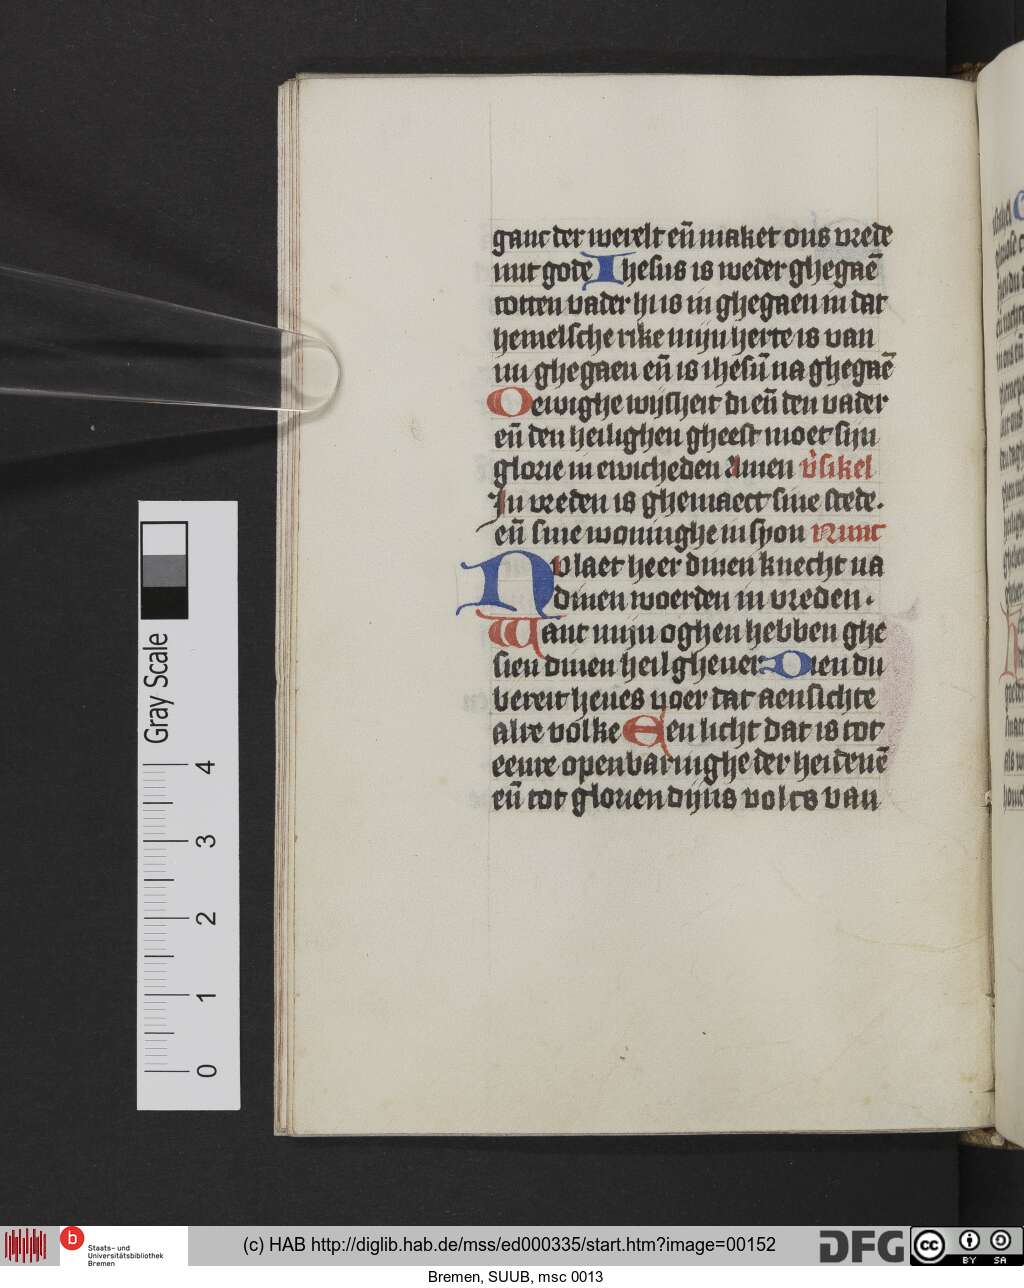 gant der werelt eñ maket ons vrede
mit gode Ihesus is weder ghegaē
totten vader hi is in ghegaen in dat
hemelsche rike mijn herte is van
mi ghegaen eñ is ihesū na ghegaē
O ewighe wijsheit di eñ den vader
eñ den heilighen gheest moet sijn
glorie in ewicheden Amen v̾sikel
In vreden is ghemaect sine stede.
eñ sine woninghe in syon Nunc
Nv laet heer dinen knecht na
dinen woerden in vreden.
Want mijn oghen hebben ghe
sien dinen heilghever Dien du
bereit heves voer dat aensichte
alre volke Een licht dat is tot
eenre openbaringhe der heidenē
eñ tot glorien dijns volcs van
Gray Scale
4
3
2
1
0
b
Staats- und
Universitätsbibliothek
Bremen
(c) HAB http://diglib.hab.de/mss/ed000335/start.htm?image=00152
DFG
cc
BY SA
Bremen, SUUB, msc 0013